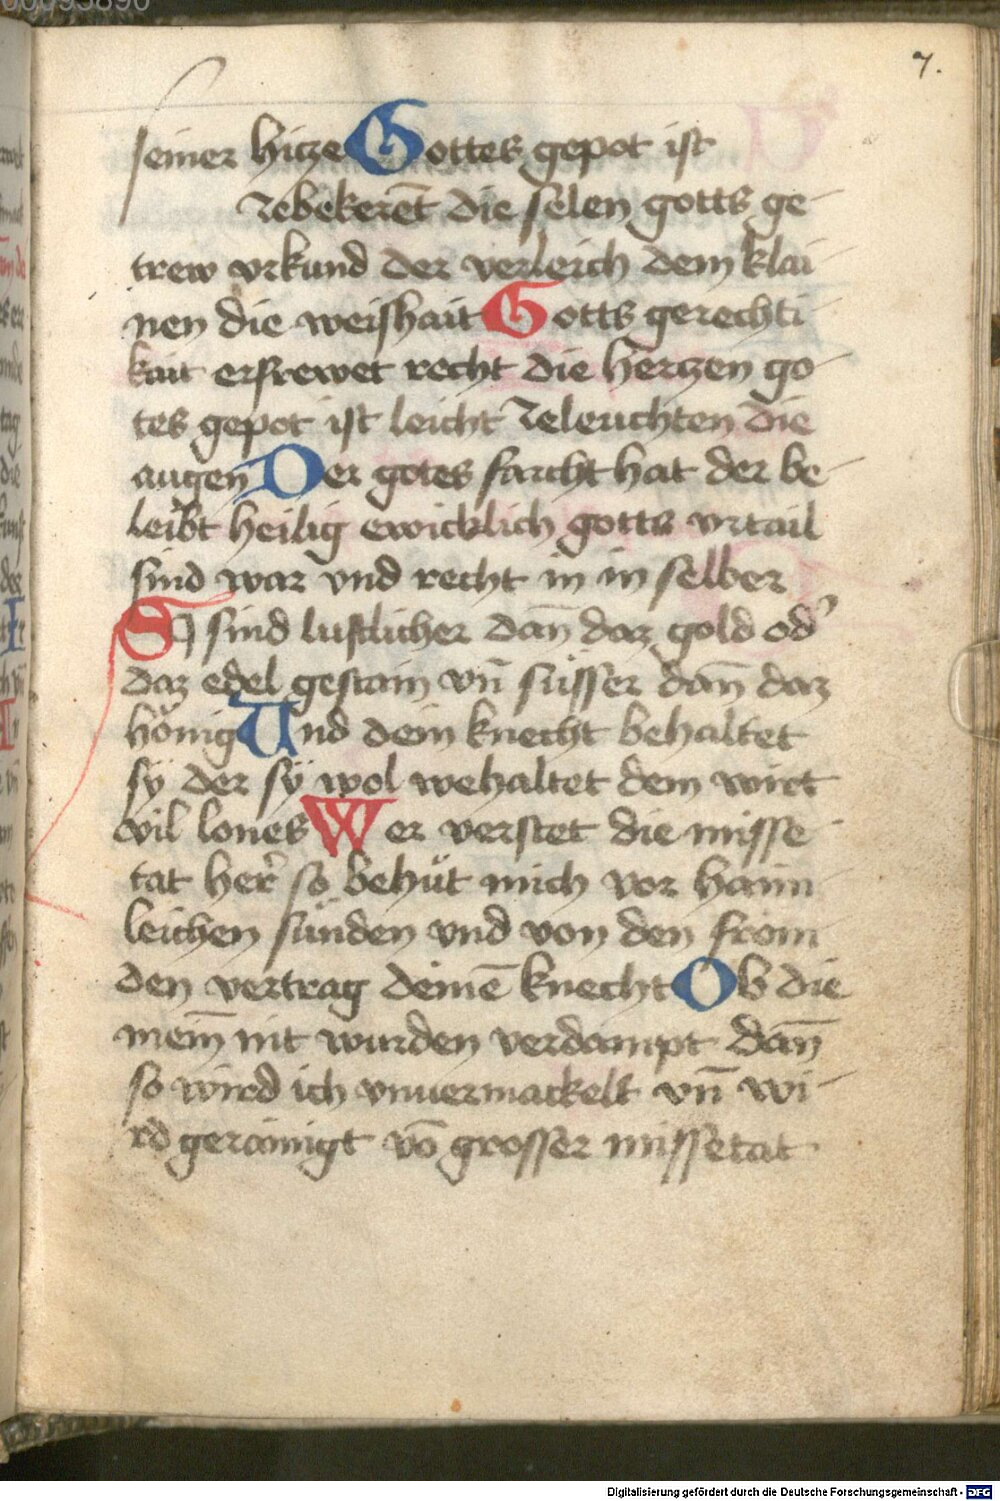 00093890
7.
seiner hicze Gottes gepot ist
zebekerēt die selen gotts ge-
trew vrkund der verleich dem klai
nen die weishait Gotts gerechti
kait erfrewet recht die herczen go-
tes gepot ist leicht zeleuchten die
augen Der gotes farcht hat der be-
leibt heilig ewicklich gotts vrtail
sind war vnd recht in in selber
Sy sind lustlicher dan̄ daz gold od'
daz edel gestain vn̄ süsser dan̄ daz
hönig Und dein knecht behaltet
sÿ der sÿ wol wehaltet dem wirt
vil lones Wer verstet die misse
tat her so behüt mich vor haim
leichen sünden vnd von den from
den vertrag deinē knecht Ob die
mein̄ nit wurden verdampt dan̄
so wird ich vnuermackelt vn̄ wi-
rd gerainigt vō grosser missetat
Digitalisierung gefördert durch die Deutsche Forschungsgemeinschaft - DFG